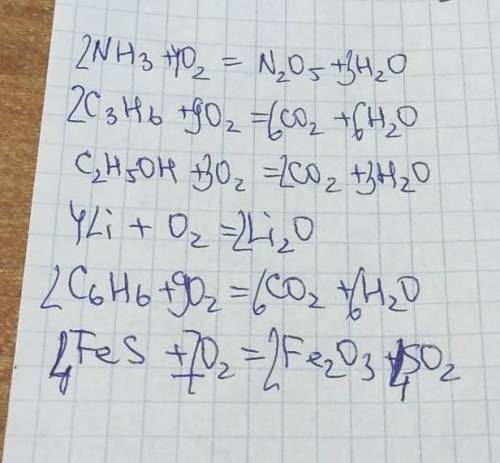 2NH₃ + 4O₂ = N₂O₅ + 3H₂O
2C₃H₆ + 9O₂ = 6CO₂ + 6H₂O
C₂H₅OH + 3O₂ = 2CO₂ + 3H₂O
4Li + O₂ = 2Li₂O
2C₆H₆ + 9O₂ = 6CO₂ + 6H₂O
4FeS + 7O₂ = 2Fe₂O₃ + 4SO₂